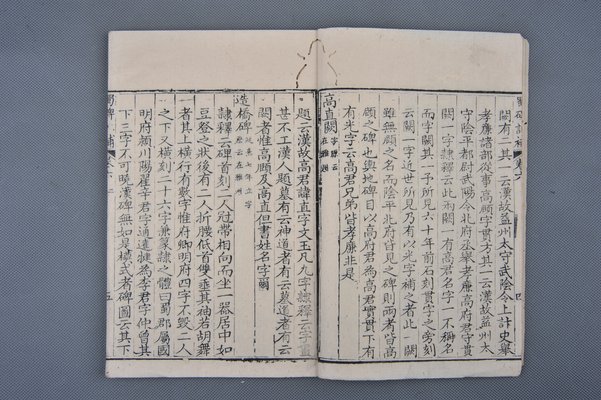 闕有二其一云漢故益州太守武陰令上計史舉
孝廉諸部從事高頤字貫方其一云漢故益州太
守陰平都尉武陽令北府丞舉孝廉高府君字貫
闕一字隸釋云此兩闕一有高君名字一不稱名
而字闕其一予所見六十年前石刻貫字之旁刻
云闕一字近世所見乃有以光字補之者此 闕
雖無頤之名而陰平北府皆見之碑則兩者皆高
頤之碑也輿地碑目以高府君為高君實貫下有
有光字云高君兄弟皆孝廉非是
高直闕
題云漢故高君諱直字文玉凡九字隸釋云字畫
甚不工漢人題墓有云神道者有云墓道者有云
闕者惟高頤及高直但書姓名字爾
造橋碑
隸釋云碑首刻二人冠帶相向而坐一器居中如
豆登之狀後有二人折腰低首雙垂其袖若胡舞
者其上橫行有數字惟府卿明府四字不毀二人
之下又橫刻二十六字兼篆隸之體曰蜀郡屬國
明府潁川陽翟辛君字通達犍為李君字仲曾其
下三字不可曉漢碑無如是橫式者碑圖云其下
蜀碑
補
五
四